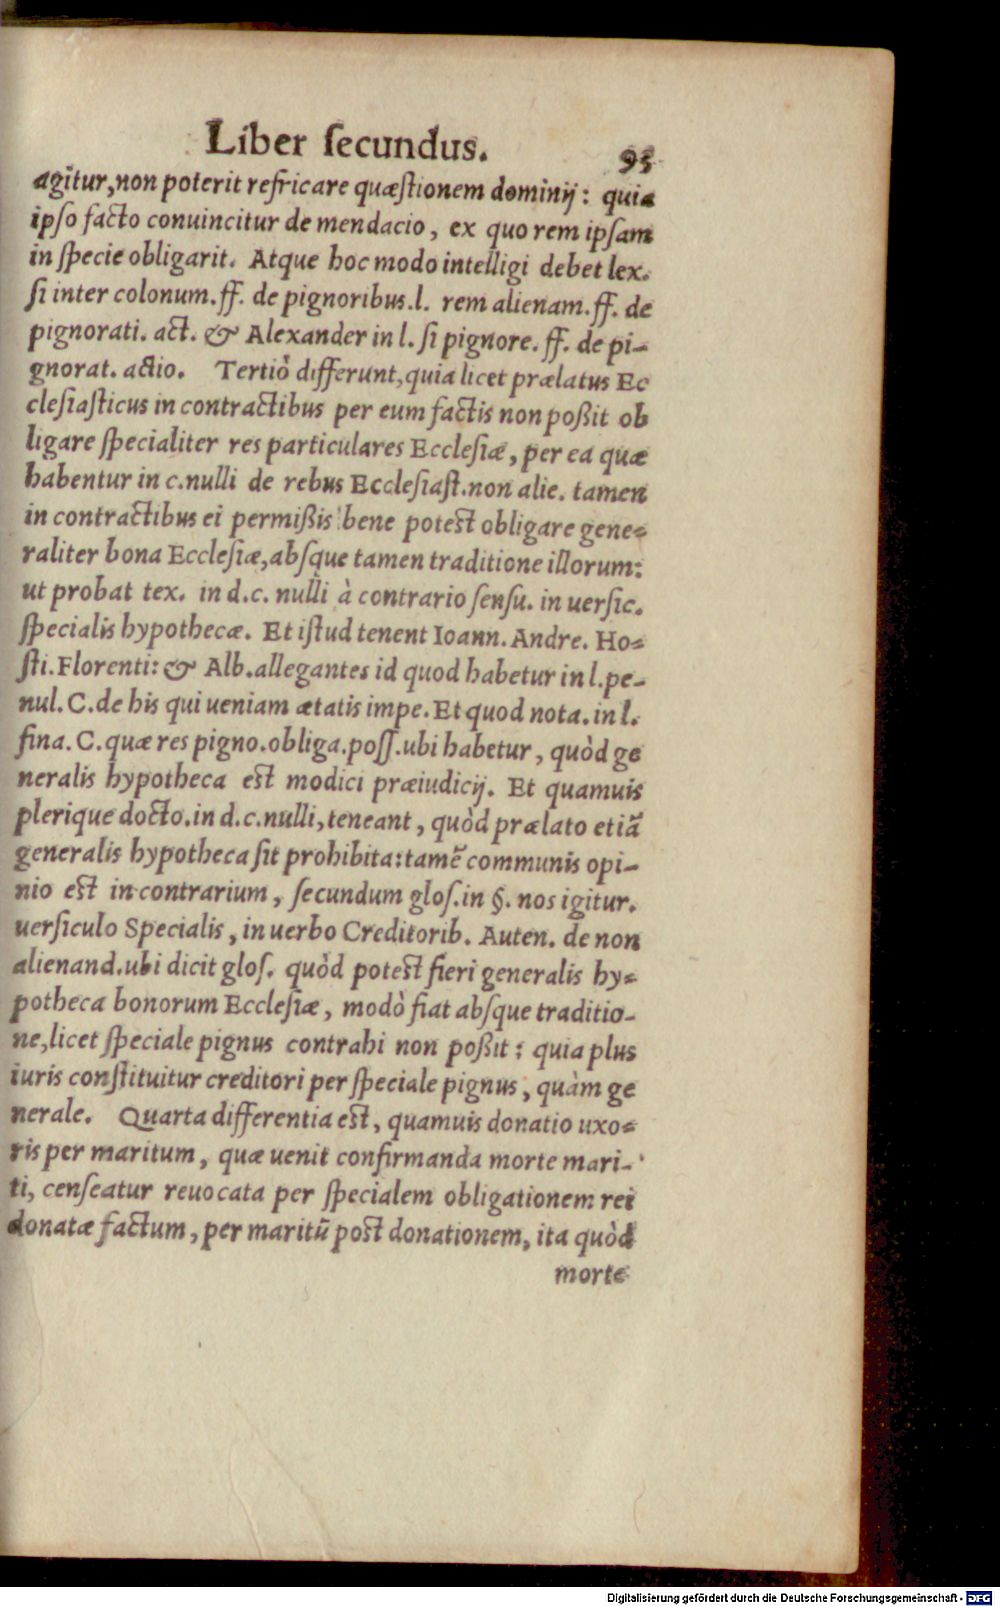 Liber ſecundus. 95
agitur, non poterit refricare quæſtionem dominij: quia
ipſo facto conuincitur de mendacio, ex quo rem ipſam
in ſpecie obligarit. Atque hoc modo intelligi debet lex.
ſi inter colonum. ff. de pignoribus. l. rem alienam. ff. de
pignorati. act. & Alexander in l. ſi pignore. ff. de pi-
gnorat. actio. Tertiò differunt, quia licet prælatus Ec
cleſiaſticus in contractibus per eum factis non poßit ob
ligare ſpecialiter res particulares Eccleſiæ, per ea quæ
habentur in c. nulli de rebus Eccleſiaſt. non alie. tamen
in contractibus ei permißis bene poteſt obligare gene-
raliter bona Eccleſiæ, abſque tamen traditione illorum:
ut probat tex. in d. c. nulli à contrario ſenſu. in uerſic.
ſpecialis hypothecæ. Et iſtud tenent Ioann. Andre. Ho-
ſti. Florenti: & Alb. allegantes id quod habetur in l. pe-
nul. C. de his qui ueniam ætatis impe. Et quod nota. in l.
fina. C. quæ res pigno. obliga. poſſ. ubi habetur, quòd ge
neralis hypotheca eſt modici præiudicij. Et quamuis
plerique docto. in d. c. nulli, teneant, quòd prælato etiã
generalis hypotheca ſit prohibita: tamẽ communis opi-
nio eſt in contrarium, ſecundum gloſ. in §. nos igitur.
uerſiculo Specialis, in uerbo Creditorib. Auten. de non
alienand. ubi dicit gloſ. quòd poteſt fieri generalis hy-
potheca bonorum Eccleſiæ, modò fiat abſque traditio-
ne, licet ſpeciale pignus contrahi non poßit: quia plus
iuris conſtituitur creditori per ſpeciale pignus, quàm ge
nerale. Quarta differentia eſt, quamuis donatio uxo-
ris per maritum, quæ uenit confirmanda morte mari-
ti, cenſeatur reuocata per ſpecialem obligationem rei
donatæ factum, per maritũ poſt donationem, ita quòd
morte
Digitalisierung gefördert durch die Deutsche Forschungsgemeinschaft - DFG